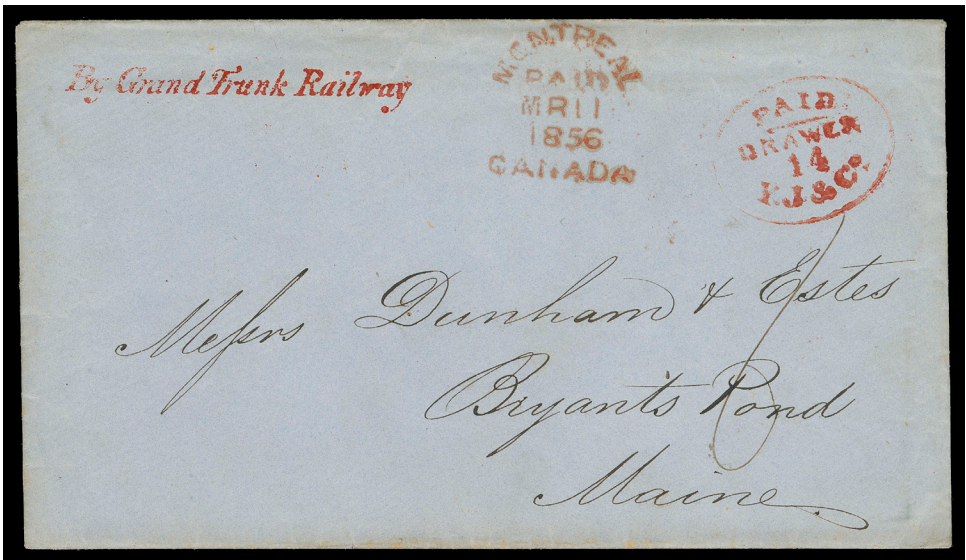 By Grand Trunk Railway
MONTREAL
PAID
MR 11
1856
CANADA
PAID
DRAWER
14
P.J. & Co.
Messrs Dunham & Estes
Bryants Pond
Maine